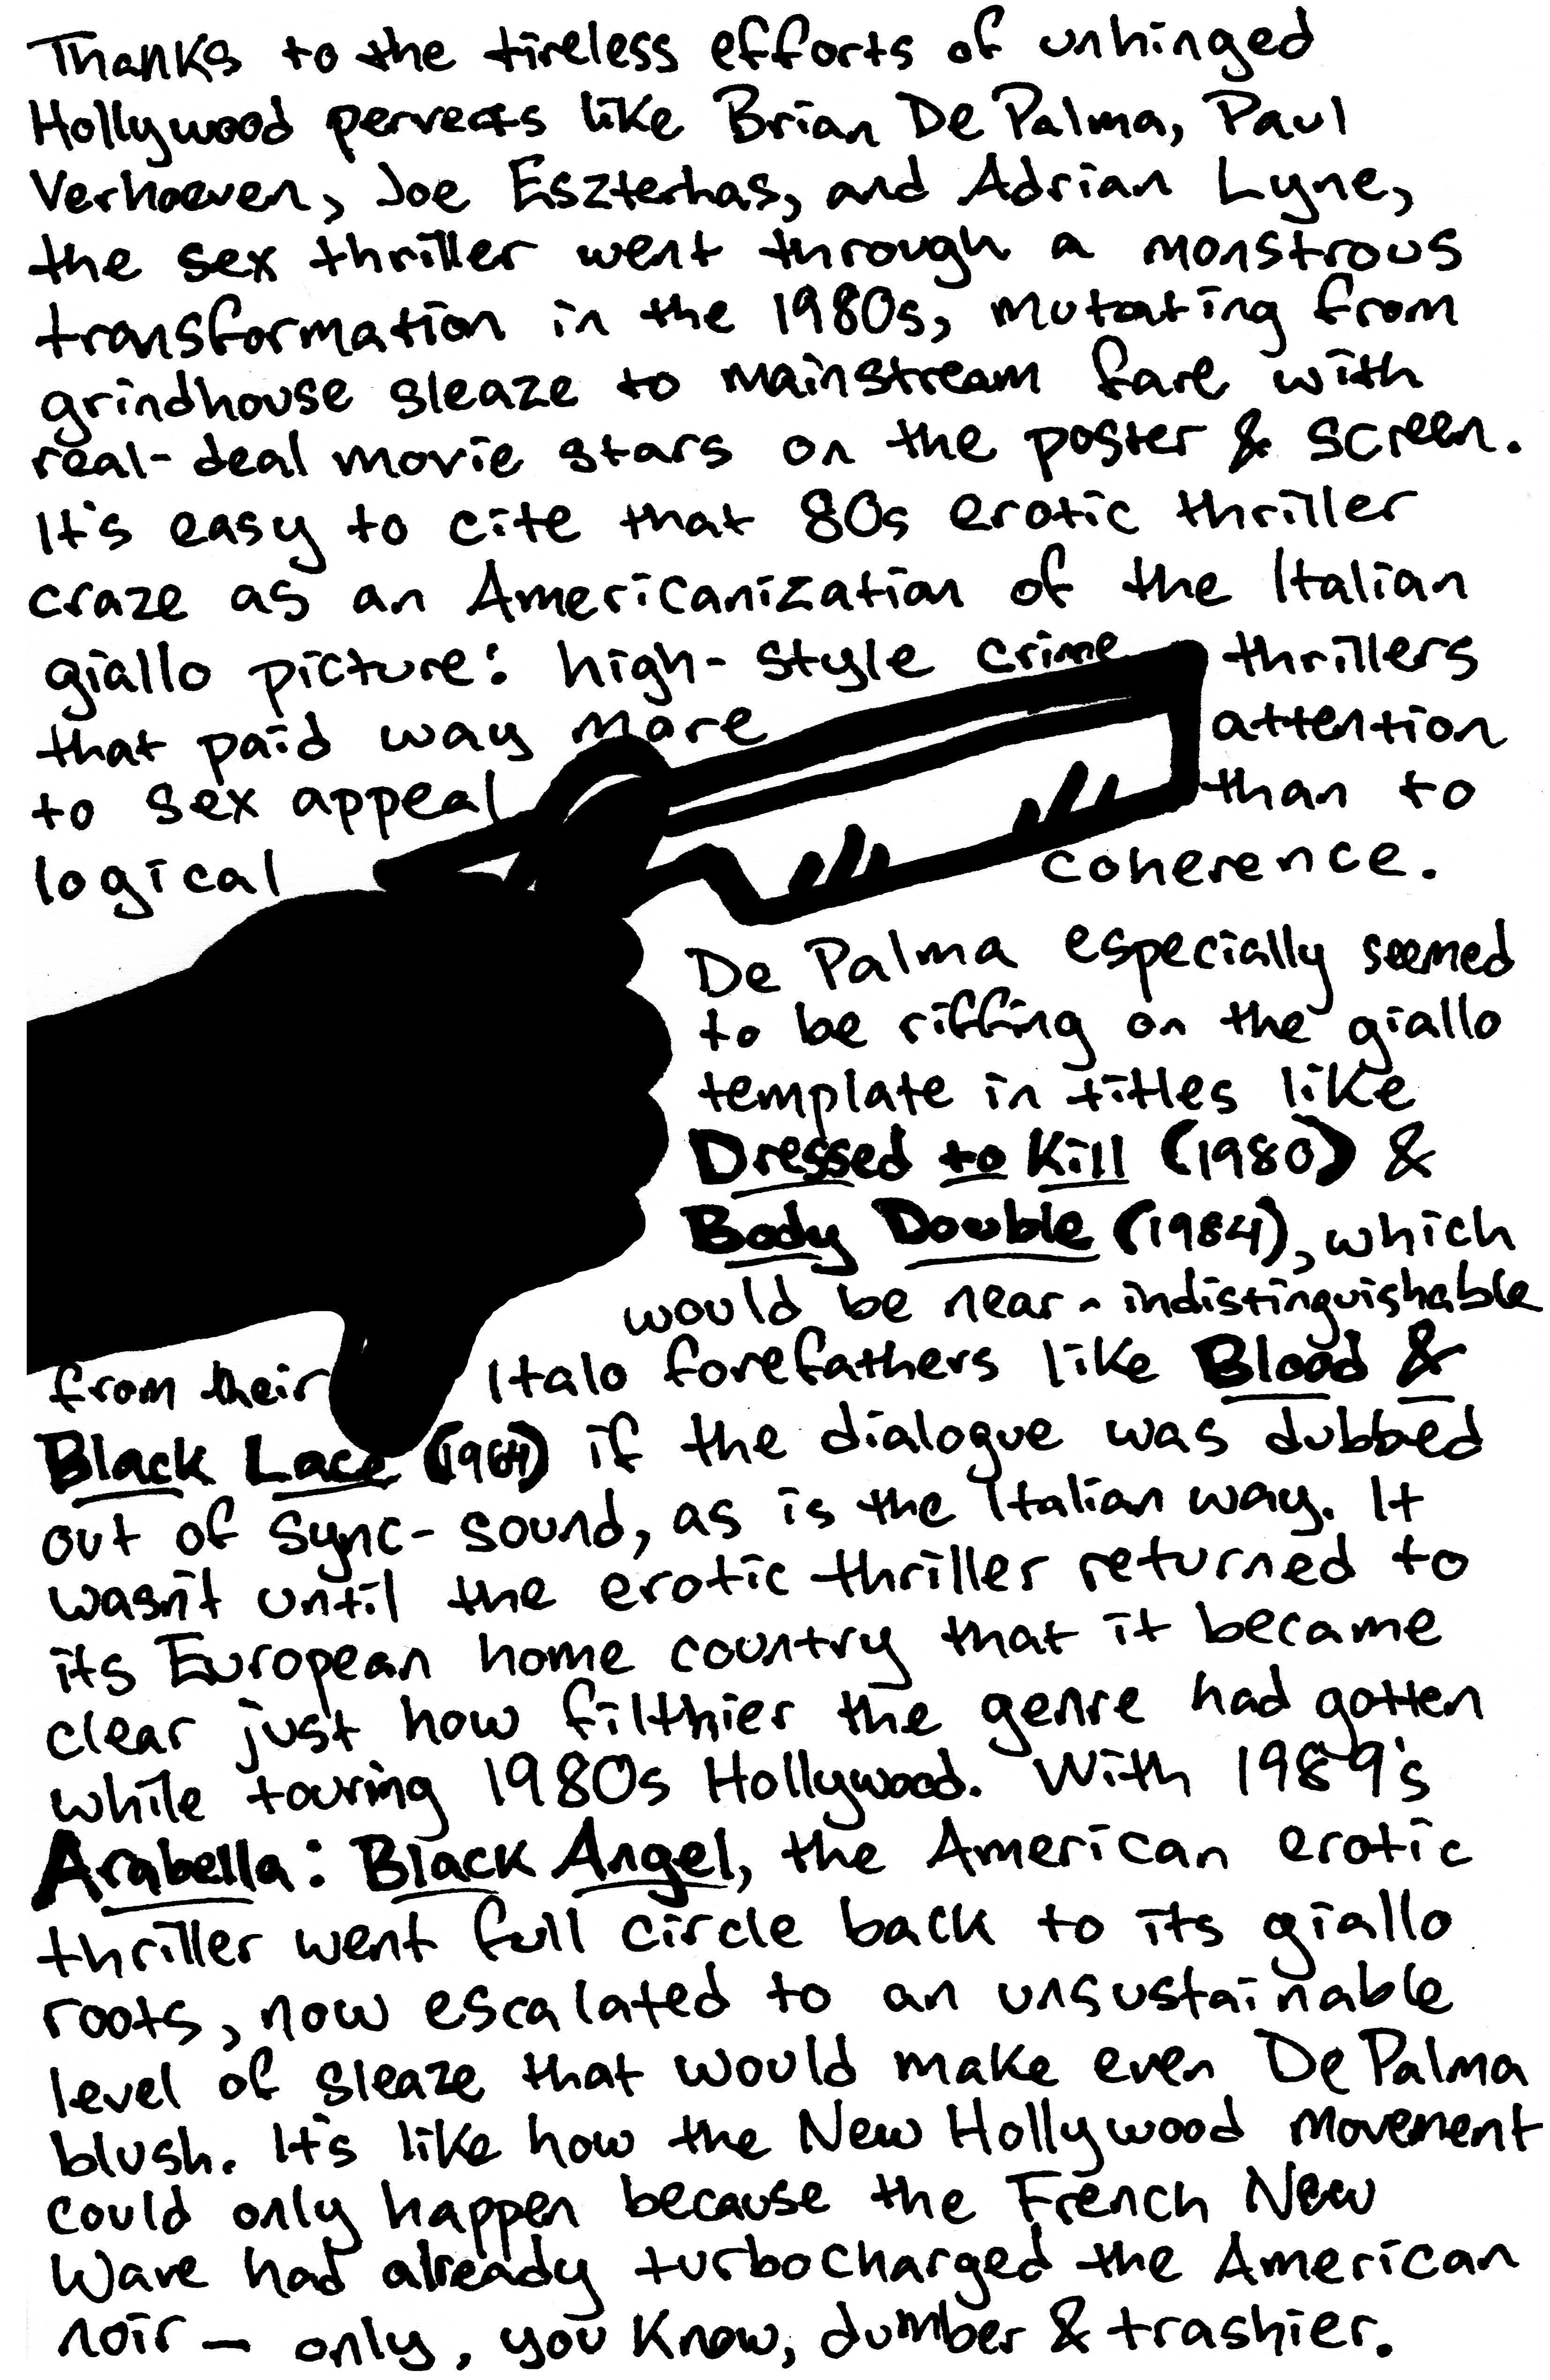 Thanks to the tireless efforts of unhinged
Hollywood perverts like Brian De Palma, Paul
Verhoeven, Joe Eszterhas, and Adrian Lyne,
the sex thriller went through a monstrous
transformation in the 1980s, mutating from
grindhouse sleaze to mainstream fare with
real-deal movie stars on the poster & screen.
It's easy to cite that 80s erotic thriller
craze as an Americanization of the Italian
giallo picture: high-style crime thrillers
that paid way more attention
to sex appeal than to
logical coherence.
De Palma especially seemed
to be riffing on the giallo
template in titles like
Dressed to Kill (1980) &
Body Double (1984), which
would be near-indistinguishable
from their Italo forefathers like Blood &
Black Lace (1964) if the dialogue was dubbed
out of sync-sound, as is the Italian way. It
wasn't until the erotic thriller returned to
its European home country that it became
clear just how filthier the genre had gotten
while touring 1980s Hollywood. With 1989's
Arabella: Black Angel, the American erotic
thriller went full circle back to its giallo
roots, now escalated to an unsustainable
level of sleaze that would make even De Palma
blush. It's like how the New Hollywood movement
could only happen because the French New
Wave had already turbocharged the American
noir — only, you know, dumber & trashier.